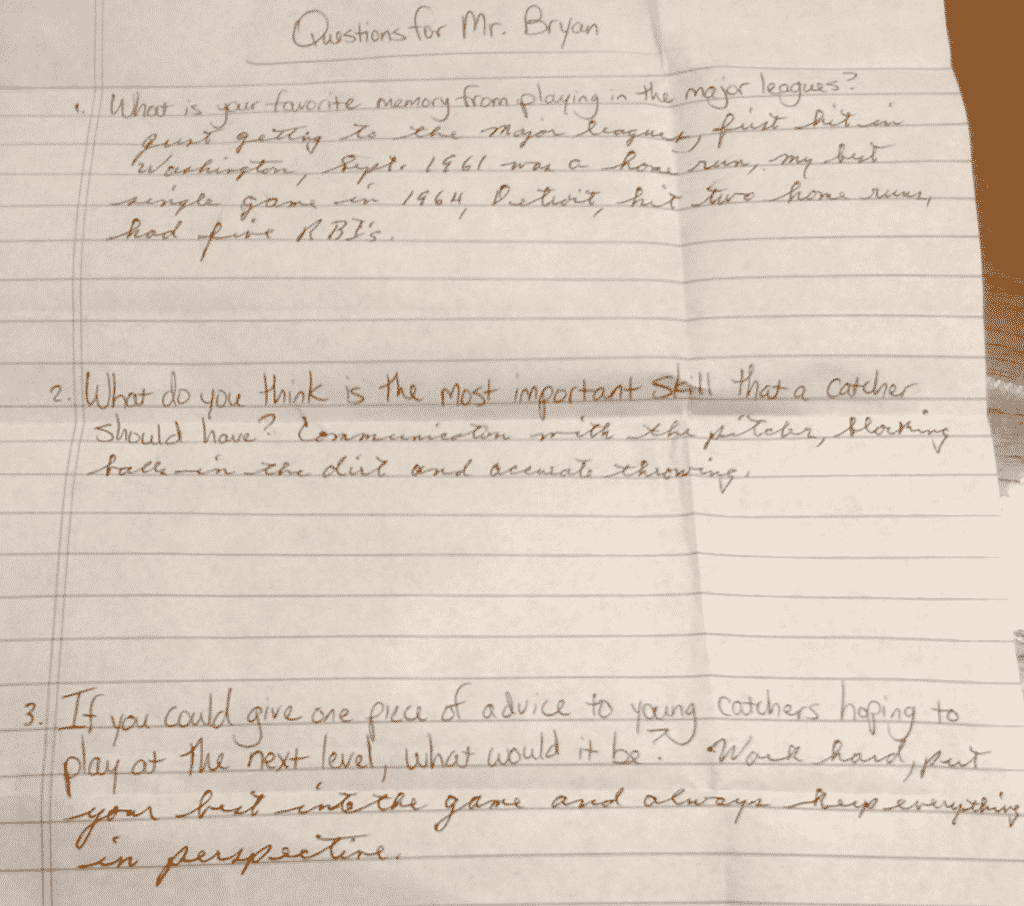 Questions for Mr. Bryan
1. What is your favorite memory from playing in the major leagues?
Just getting to the major leagues, first hit in
Washington, Sept. 1961 was a home run, my best
single game in 1964, Detroit, hit two home runs,
had five RBI's.
2. What do you think is the most important skill that a catcher
should have? Communication with the pitcher, blocking
balls in the dirt and accurate throwing.
3. If you could give one piece of advice to young catchers hoping to
play at the next level, what would it be? Work hard, put
your best into the game and always keep everything
in perspective.